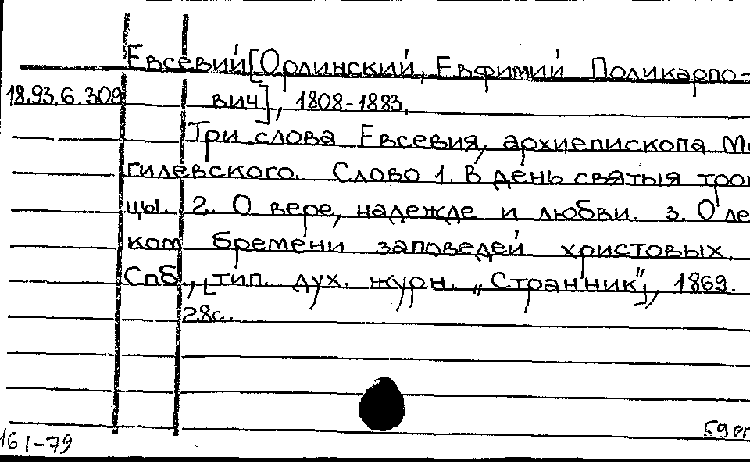 Евсевий[Орлинский, Евфимий Поликарпо-
18.93.6.309 вич], 1808-1883.
Три слова Евсевия, архиепископа Мо
гилевского. Слово 1. В день святыя трои
цы. 2. О вере, надежде и любви. 3. О лег
ком бремени заповедей христовых.
Спб., [тип. дух. журн. „Странник"], 1869.
28с.
161-79